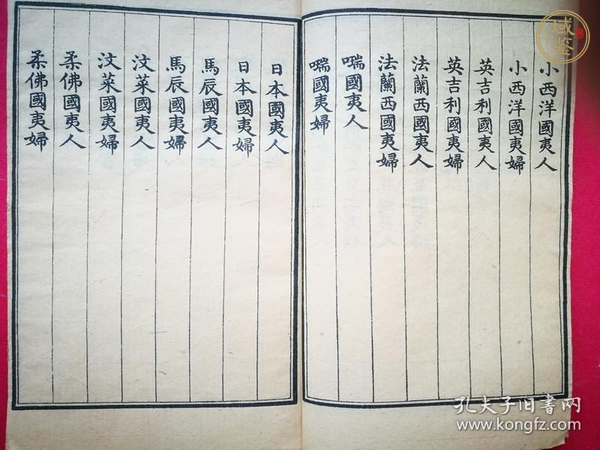 小西洋國夷人
小西洋國夷婦
英吉利國夷人
英吉利國夷婦
法蘭西國夷人
法蘭西國夷婦
㗨國夷人
㗨國夷婦
日本國夷人
日本國夷婦
馬辰國夷人
馬辰國夷婦
汶萊國夷人
汶萊國夷婦
柔佛國夷人
柔佛國夷婦
孔夫子旧书网
www.kongfz.com